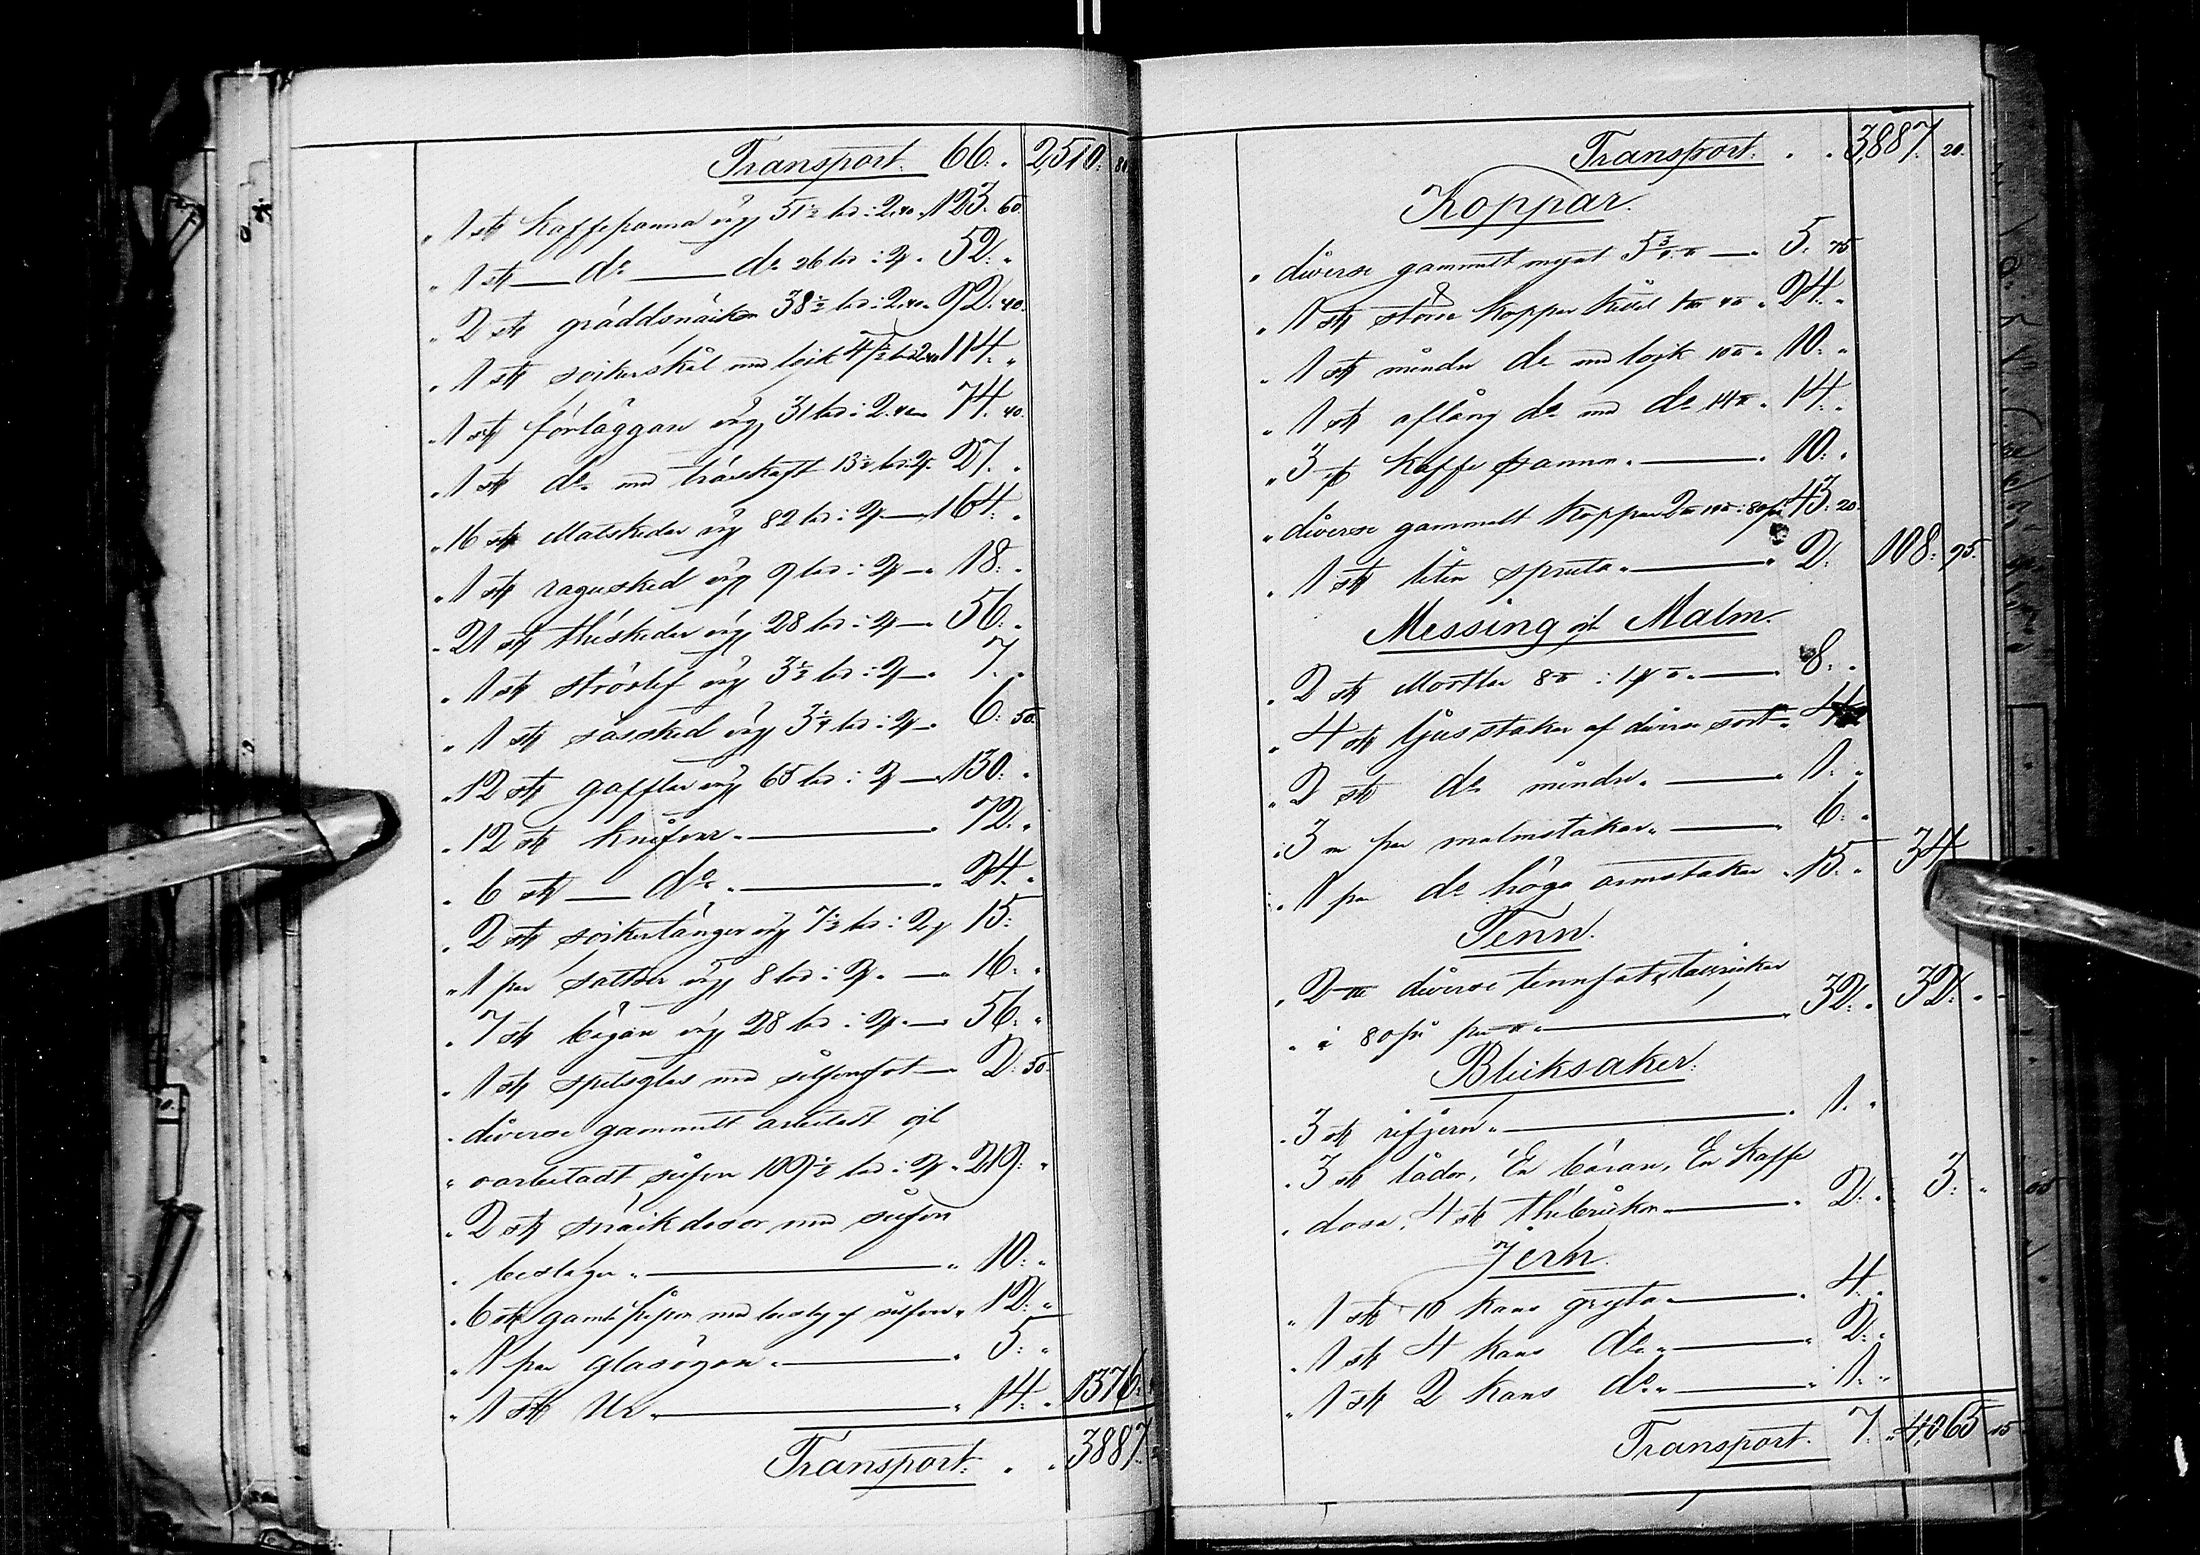 Transport. 66. " 2,510: 80
" 1 st Kaffepanna väg 51 1/2 lod: 2,40 " 123. 60.
" 1 st — do — do 26 lod: 2 " 52: "
" 2 st gräddsnäckor 38 1/2 lod: 2.40 " 92. 40.
" 1 st sockerskål med lock 47 1/2 lod 2.40 114: "
" 1 st förläggare väg 31 lod: 2.40 " 74. 40.
" 1 st do med träskaft 13 1/2 lod: 2 " 27. "
" 16 st Matskedar väg 82 lod: 2 — " 164: "
" 1 st ragusked väg 9 lod: 2 — " 18: "
" 21 st theskedar väg 28 lod: 2 — " 56: "
" 1 st ströslef väg 3 1/2 lod: 2 — " 7. "
" 1 st såssked väg 3 1/4 lod: 2 — " 6: 50.
" 12 st gafflar väg 65 lod: 2 — " 130: "
" 12 st knifvar " — " 72: "
" 6 st — do " — " 24: "
" 2 st sockertänger väg 7 1/2 lod: 2 15:
" 1 par saltkar väg 8 lod: 2 " — " 16: "
" 7 st bägare väg 28 lod: 2 " — " 56: "
" 1 st spetsglas med silfverfot — " 2: 50.
" diverse gammalt arbetadt och
" oarbetadt silfver 109 1/2 lod: 2 " 219: "
" 2 st snäckdosor med silfver
" beslager " — " 10: "
" 6 st gamla pipor med beslag af silfver " 12: "
" 1 par glasögon " — " 5: "
" 1 st Ur " — " 14: " 1376:
Transport: " " 3887.
Transport. " " 3,887. 20.
Koppar.
" diverse gammalt mynt 5 3/4 — " 5. 75
" 1 st större koppar kittel " 24: "
" 1 st mindre do med lock 10 " 10: "
" 1 st aflång do med do 14 " 14: "
" 3 st Kaffe pannor " — " 10: "
" diverse gammalt Koppar : 80 43. 20.
" 1 st liten spruta " — " 2: 108: 95.
Messing och Malm.
" 2 st Mortlar 8 : 1 " — " 8: "
" 4 st ljusstakar af diverse sort " 4
" 2 st do mindre " — " 1: "
" 3 par malmstakar " — " 6: "
" 1 par do höga armstakar " 15: " 34
Tenn.
" 2 diverse tennfat, tallrickar
" à 80 per " — " 32: " 32: "
Blecksaker.
" 3 st rifjern " — " 1. "
" 3 st lådor, En båran, En Kaffe
" dosa, 4 st thebrickor — " 2: " 3: "
Jern.
" 1 st 10 kans gryta " — " 4: "
" 1 st 4 kans do " — " 2: "
" 1 st 2 kans do " — " 1: "
Transport. 7: " 4,065 15.